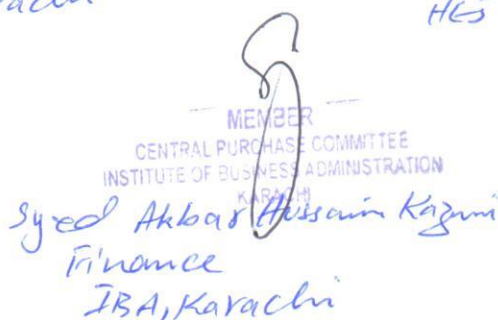 HES
MEMBER
CENTRAL PURCHASE COMMITTEE
INSTITUTE OF BUSINESS ADMINISTRATION
KARACHI
Syed Akbar Hussain Kazmi
Finance
IBA, Karachi